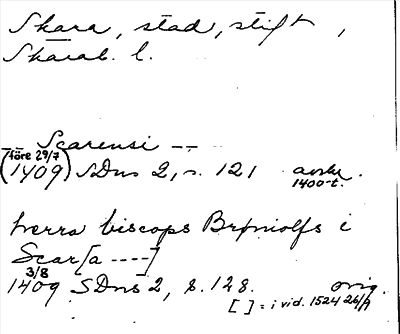 Skara, stad, stift,
Skarab. l.
-- Scarensi --
(före 29/7 1409) SDns 2, s. 121 avskr. 1400-t.
herra biscops Bryniolfs i
Scar[a ----]
3/8 1409 SDns 2, s. 128. orig.
[ ] = i vid. 1524 26/9